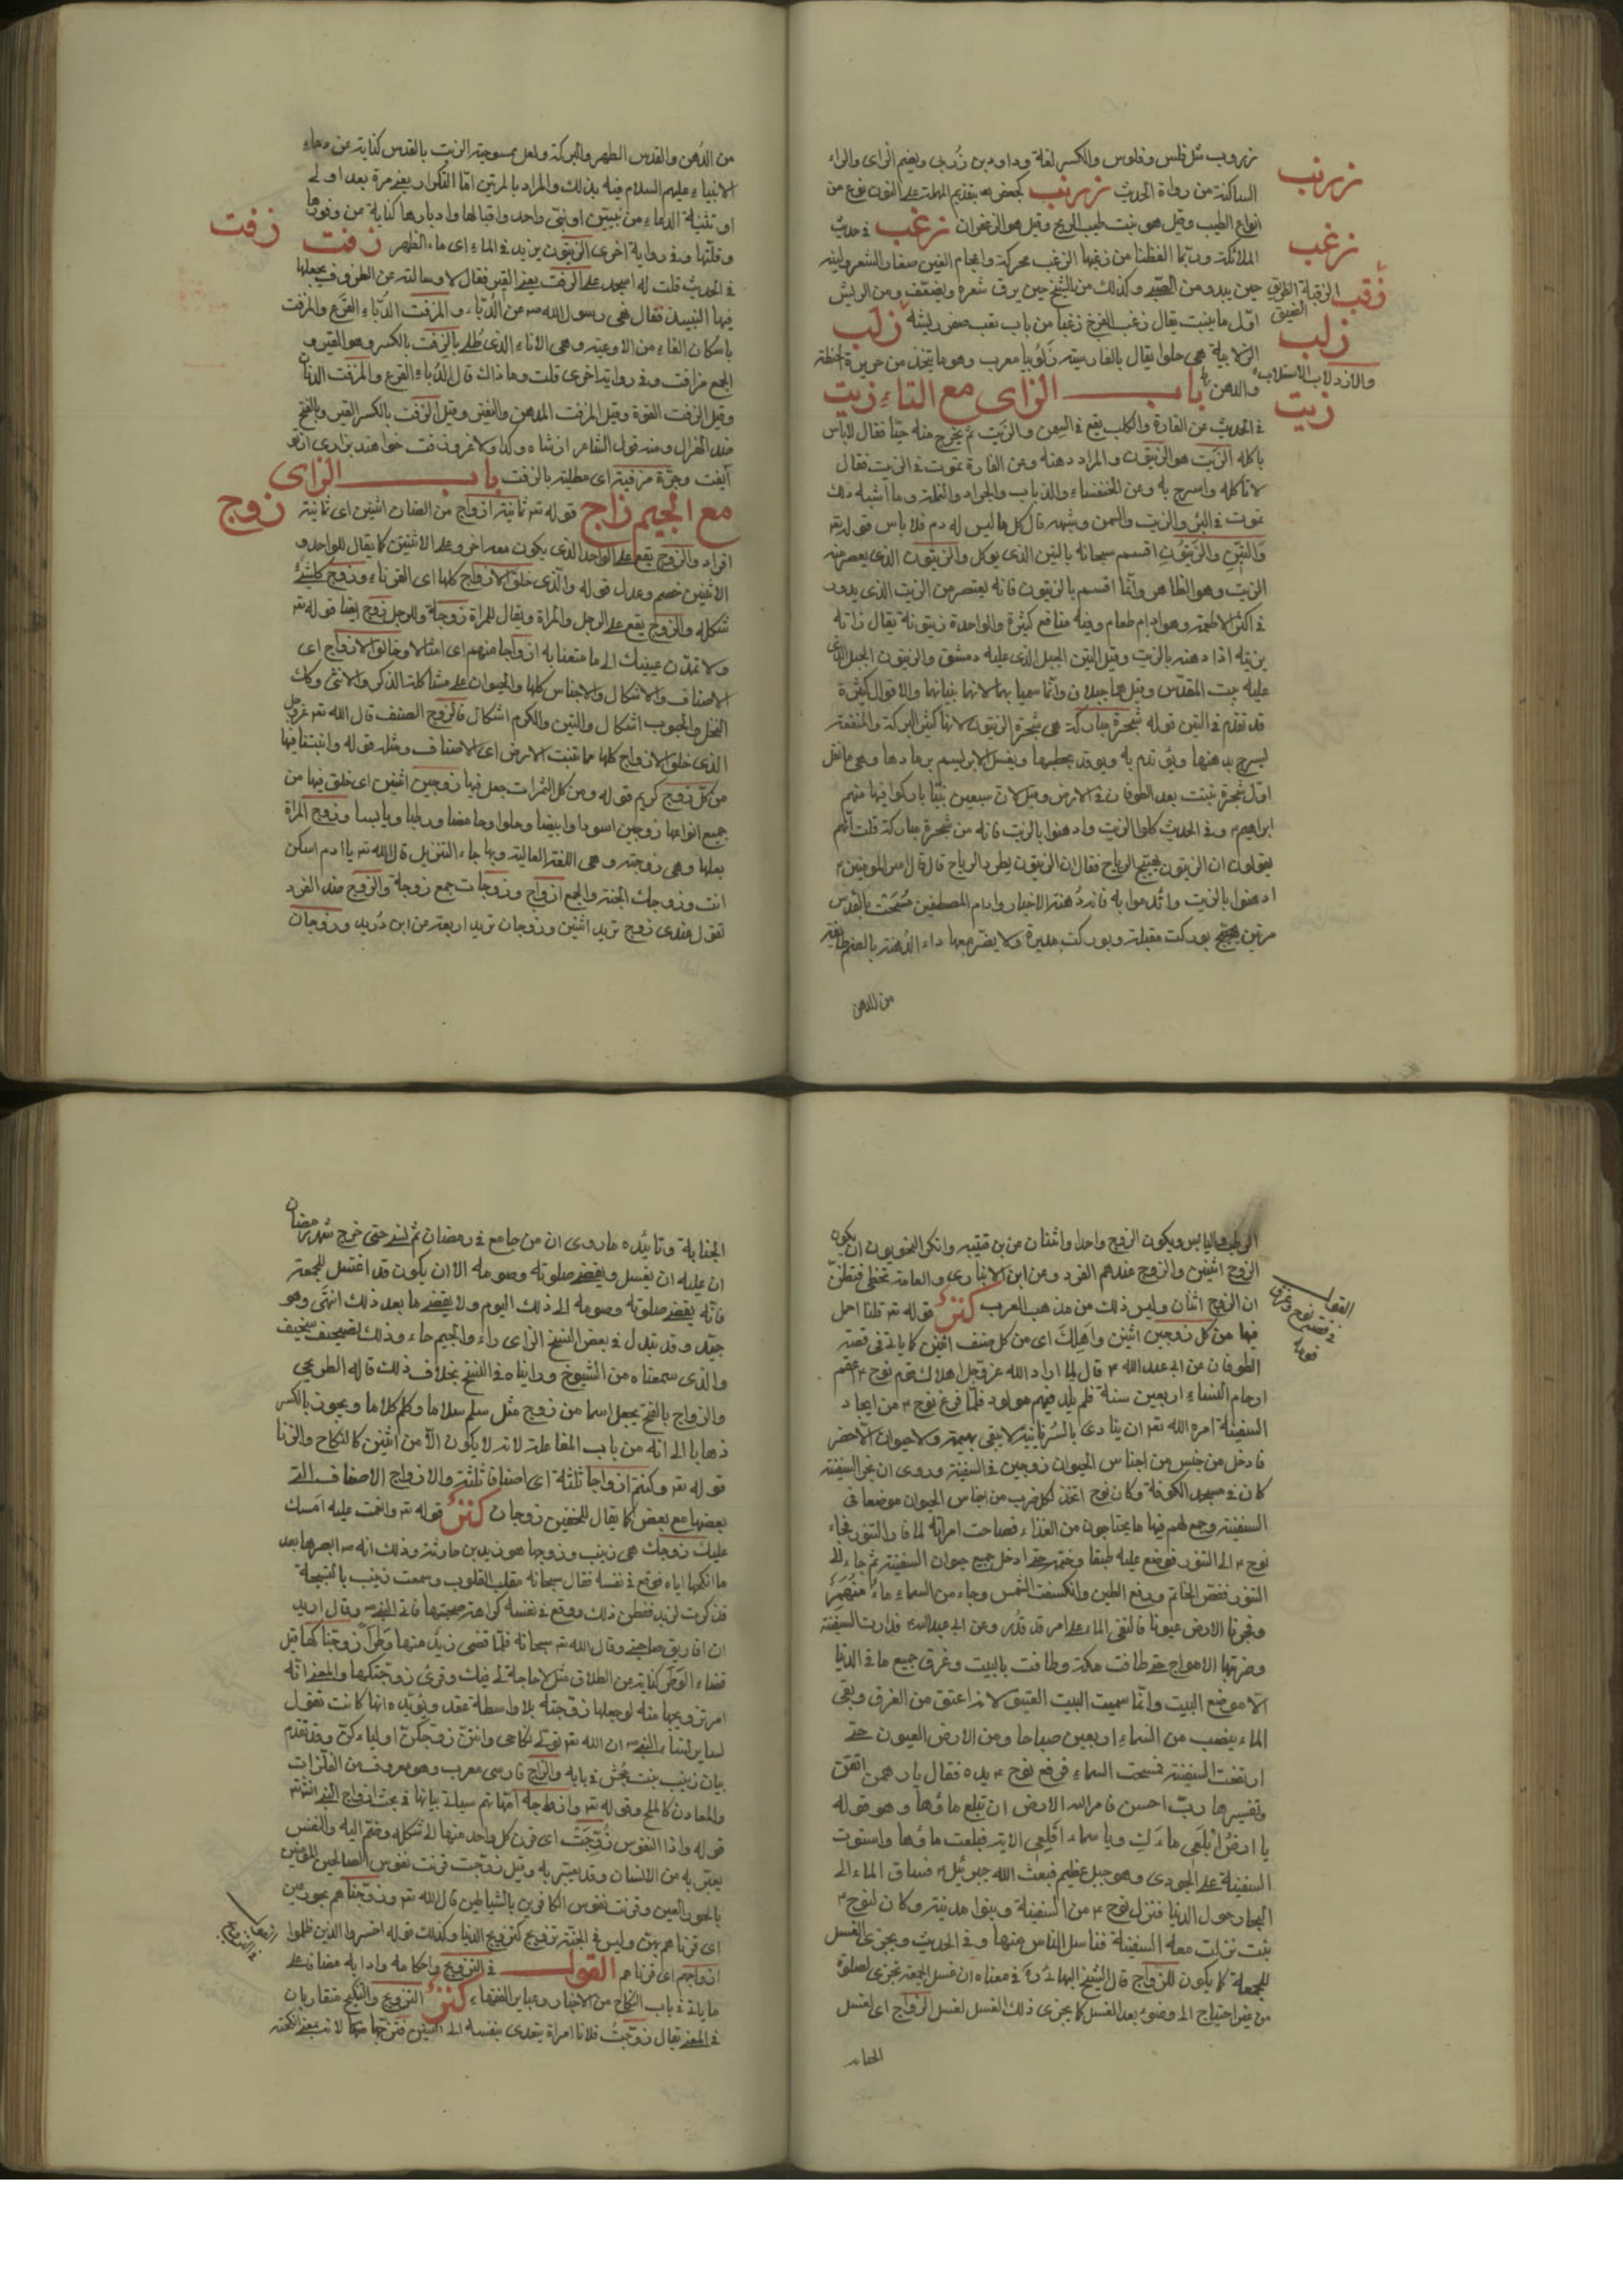 زروب مثل فلس وفلوس والكسر لغة وداود بن زربى وبضم الزاى والراء
الساكنة من رواة الحديث زرنب كجعفر بتقديم المهملة على النون نوع من
انواع الطيب وقيل هو نبت طيب الريح وقيل هو الزعفران زغب فى حديث
الملائكة وربّما التقطنا من زغبها الزغب محركة واعجام الغين صغار الشعر ولينه
حين يبدو من الصبى وكذلك من الشيخ حين يرق شعره ويضعف ومن الريش
اوّل ما ينبت يقال زغب الفرخ زغبا من باب تعب صغر ريشه زلب
الزلابية هى حلوا يقال بالفارسية زلوبيا معرب وهو ما يتخذ من حريرة الحنطة
والدهن باب الزاى مع التاء زيت
فى الحديث عن الفارة والكلب يقع فى السمن والزيت ثم يخرج منه حيّا فقال لا باس
باكله الزيت هو الزيتون والمراد دهنه وعن الفارة تموت فى الزيت فقال
لا تاكله واسرج به وعن الخنفساء والذباب والجراد والنملة وما اشبه ذلك
تموت فى البئر والزيت والسمن وشبهه قال كل ما ليس له دم فلا باس قوله تعه
وَالتِّينِ والزَّيتُونِ اقسم سبحانه بالتين الذى يوكل والزيتون الذى يعصر منه
الزيت وهو الظاهر وانّما اقسم بالزيتون فانه يعتصر من الزيت الذى يدور
فى اكثر الاطعمة وهو ادام طعام وفيه منافع كثيرة والواحدة زيتونة يقال زاته
يزيته اذا دهنه بالزيت وقيل التين الجبل الذى عليه دمشق والزيتون الجبل الذى
عليه بيت المقدّس وقيل هما جبلان وانّما سميا بهما لانها بنباتها والاقوال كثيرة
قد تقدم فى التين قوله شجرة مباركة هى شجرة الزيتون لانها كثير البركة والمنفعة
ليسرج بدهنها ويؤتدم به ويوقد بحطبها ويغسل الابريسم برمادها وهى ما نقل
اوّل شجرة نبتت بعد الطوفان فى الارض وقيل لان سبعين نبيّا باركوا فيها منهم
ابراهيم ع وفى الحديث كلوا الزيت وادهنوا بالزيت فانه من شجرة مباركة قلت انّهم
يقولون ان الزيتون يهيّج الرياح فقال ان الزيتون يطرد الرياح قال قال امير المومنين ع
ادهنوا بالزيت وائدموا به فانه دُهنة الاخيار وادام المصطفين مُسِحَتْ بالقُدس
مرتين بوركت مقبلة وبوركت مدبرة ولا يضر معها داء الدُهنة بالضم طائفة
من الدهن
زرنب
زغب
زقب الزقبة الطريق الضيق
زلب
والازدلاب الاستلاب
زيت
من الدُهن والقدس الطهر والبركة ولعل ممسوحية الزيت بالقدس كناية عن دعاء
الانبياء عليهم السلام فيه بذلك والمراد بالمرتين امّا التكرار يعنى مرة بعد اولى
او تثنية الدعاء من نبيين او نبى واحد واقبالها وادبارها كناية عن وفورها
وقلّتها وفى رواية اخرى الزيتون يزيد فى الماء اى ماء الظهر زفت
فى الحديث قلت له اسجد على الزفت يعنى القير فقال لا وسالته عن الظروف يجعلها
فيها النبيذ فقال نهى رسول الله صه عن الدُبّاء والمزفت الدُبّاء القَرع والمزفت
باسكان الفاء من الاوعية وهى الاناء الذى طُلى بالزفت بالكسر وهو القير و
الجمع مزافت وفى رواية اخرى قلت وما ذاك قال الدُباء القرع والمزفت الدنان
وقيل الزفت القوة وقيل المزفت المدهن والنفتى وقيل الزفت بالكسر القير وبالفتح
ضد الهزال ومنه قول الشاعر
آلفت وجرّة مزفتة اى مطلية بالزفت باب الزاى
مع الجيم زاج قوله تعه ثمانية ازواج من الضان اثنين اى ثمانية
افراد والزوج يقع على الواحد الذى يكون معه اخر وعلى الاثنين كما يقال للواحد و
الاثنين خصم وعدل قوله والّذى خلق الازواج كلها اى القرناء وزوج كلّ شئ
شكله والزوج يقع على الرجل والمراة ويقال للمراة زوجة وللرجل زوج ايضا قوله تعه
ولا تمدّن عينيك الى ما متعنا به ازواجا منهم اى امثالا وخالق الازواج اى
الاصناف والاشكال والاجناس كلها والحيوان على مشاكلة الذكر والانثى وكك
النخل والحبوب اشكال والتين والكرم اشكال فالزوج الصنف قال الله تعه عز وجل
الذى خلق الازواج كلها مما تنبت الارض اى الاصناف ومثله قوله وانبتنا فيها
من كلّ زوج كريم قوله ومن كل الثمرات جعل فيها زوجين اثنين اى خلق فيها من
جميع انواعها زوجين اسود او ابيض وحلوا وحامضا ورطبا ويابسا وزوج المراة
بعلها وهى زوجته وهى اللغة العالية وبها جاء التنزيل قال الله تعه يا ادم اسكن
انت وزوجك الجنة والجمع ازواج وزوجات جمع زوجة والزوج ضد الفرد
تقول عندى زوج تريد اثنين وزوجان تريد اربعة عن ابن دُريد وزوجان
زفت
زوج
الرطب واليابس ويكون الزوج واحدا واثنان عن بن قتيبه وانكر النحويون ان يكون
الزوج اثنين والزوج عندهم الفرد وعن ابن الانبارى والعامة تخطى فتظنّ
ان الزوج اثنان وليس ذلك من مذهب العرب كنز قوله تعه قلنا احمل
فيها من كل زوجين اثنين واَهلك اى من كل صنف اثنين كما ياتى فى قصة
الطوفان عن ابى عبد الله ع قال لما اراد الله عز وجل اهلاك قوم نوح ع اعقم
ارحام النساء اربعين سنة فلم يلد فيهم مولود فلمّا فرغ نوح ع من ايجاد
السفينة امره الله تعه ان ينادى بالسُريانية لا يبقى بهيمة ولا حيوان الّا حضر
فادخل من جنس من اجناس الحيوان زوجين فى السفينة وروى ان نجر السفينة
كان فى مسجد الكوفة وكان نوح اتخذ لكل ضرب من اجناس الحيوان موضعا فى
السفينة وجمع لهم فيها ما يحتاجون من الغذاء فصاحت امراته لما فار التنور فجاء
نوح ع الى التنور فوضع عليه طبقا وختمه حتى ادخل جميع حيوان السفينة ثم جاء الى
التنور ففض الخاتم ورفع الطين وانكسفت الشمس وجاء من السماء ماء مُنْهَمِرٌ
وفجرنا الارض عيونا فالتقى الماء على امر قد قُدر وعن ابى عبد الله ع فدارت السفينة
وضربتها الامواج حتى طافت مكة وطافت بالبيت وغرق جميع ما فى الدنيا
الّا موضع البيت وانّما سميت البيت العتيق لانه اعتق من الغرق وبقى
الماء ينصب من السماء اربعين صباحا ومن الارض العيون حتى
ارتفعت السفينة فمسحت السماء فرفع نوح ع يده فقال يا رهمن اتقن
وتفسيرها ربّ احسن فامر الله الارض ان تبلع ماؤها وهو قوله
يا ارضُ ابْلَعى ماءَكِ ويا سماء اَقْلِعى الاية فبلعت ماؤها واستوت
السفينة على الجودى وهو جبل عظيم فبعث الله جبرئيل ع فساق الماء الى
البحار حول الدنيا فنزل نوح ع من السفينة وبنوا مدينة وكان لنوح ع
بنت نزلت معه السفينة فناسل الناس منها وفى الحديث ويجزى الغسل
للجمعة كما يكون للزواج قال الشيخ البهائى ره فى معناه ان غسل الجمعة تجزى لصلوة
من غير احتياج الى وضوء بعد الغسل كما يجزى ذلك الغسل لغسل الزواج اى لغسل
الجنابة
القول فى قصة نوح وغرق قومه
الجنابة وتائيده ما روى ان من جامع فى رمضان ثم نسى حتى خرج شهر رمضان
ان عليه ان يغسل ويقضى صلوته وصومه الا ان يكون قد اغتسل للجمعة
فانّه يقضى صلوته وصومه الى ذلك اليوم ولا يقضى ما بعد ذلك انتهى وهو
جيّد وقد تبدل فى بعض النسخ الزاى راء والجيم حاء وذلك تصحيف سخيف
والذى سمعناه من الشيوخ ورايناه فى النسخ بخلاف ذلك قاله الطريحى
والزواج بالفتح يجعل اسما من زوج مثل سلم سلاما وكلم كلاما ويجوز بالكسر
ذهابا الى انه من باب المفاعلة لانه لا يكون الّا من اثنين كالنكاح والزنا
قوله تعه وكنتم ازواجا ثلثة اى اصنافا ثلثة والازواج الاصناف التى
بعضها مع بعض كما يقال للخفين زوجان كنز قوله تعه وانعمت عليه امسك
عليك زوجك هى زينب وزوجها هو زيد بن حارثة وذلك انه صه ابصرها بعد
ما انكحها اياه فوقع فى نفسه فقال سبحانه مقلب القلوب وسمعت زينب بالتسبيحة
فذكرت لزيد ففطن ذلك ووقع فى نفسه كراهة صحبتها فاتى النبى صه وقال اريد
ان افارق صاحبتى وقال الله تعه سبحانه فلمّا قضى زيدٌ منها وَطَراً زوجناكها قيل
قضاء الوَطَر كناية عن الطلاق مثل لا حاجة لى فيك وقرئ زوّجتكها والمعنى انّه
امر تزويجها منه او جعلها زوجته بلا واسطة عقد ويؤيّده انها كانت تقول
لساير نساء النبى صه ان الله تعه تولّى نكاحى وانتنّ زوّجكنّ اولياءكنّ وقد تقدم
بيان زينب بنت جحش فى بابه والزاج فارسى معرب وهو معروف من الفلزات
والمعادن كالملح وقوله تعه وازواجه امّهاتهم سياتى بيانها فى بحث ازواج النبى انشاته
قوله واذا النفوس زُوِّجَتْ اى قرن كل واحد منها الى شكله وضّم اليه والنفس
يعتبر به من الانسان وقد يعتبر به وقيل زوّجت قرنت نفوس الصالحين المومنين
بالحور العين وقرنت نفوس الكافرين بالشياطين قال الله تعه وزوجناهم بحور عين
اى قرناهم بهن وليس فى الجنة تزويج كتزويج الدنيا وكذلك قوله احشروا الذين ظلموا
ازواجهم اى قرناهم القول فى التزويج واحكامه وادابه مضافا على
ما ياتى فى باب النكاح من الاخبار وعباير الفقهاء كنز التزويج والنكاح متقاربان
فى المعنى يقال زوّجتُ فلانا امراة يتعدى بنفسه الى اثنين فتزوجها لانه بمعنى انكحته
القول فى التزويج